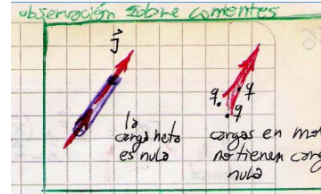 observación sobre corrientes
J
la
carga neta
es nula
q
q
q
cargas en mo
no tienen carg
nula